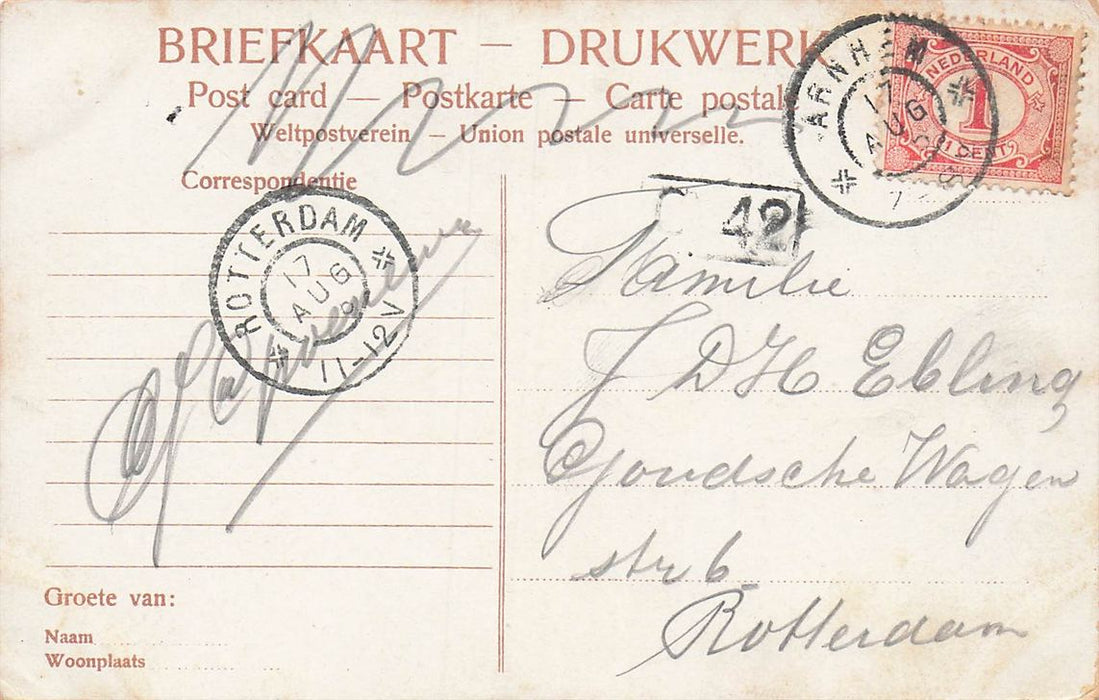 BRIEFKAART — DRUKWERK
Post card — Postkarte — Carte postale
Weltpostverein — Union postale universelle.
ARNHEM
17
AUG
NEDERLAND
1
1 CENT
Correspondentie
42
ROTTERDAM
17
AUG
11-12V
Familie
J D H Ebling
Goudsche Wagen
str 6
Rotterdam
Groete van:
Naam
Woonplaats